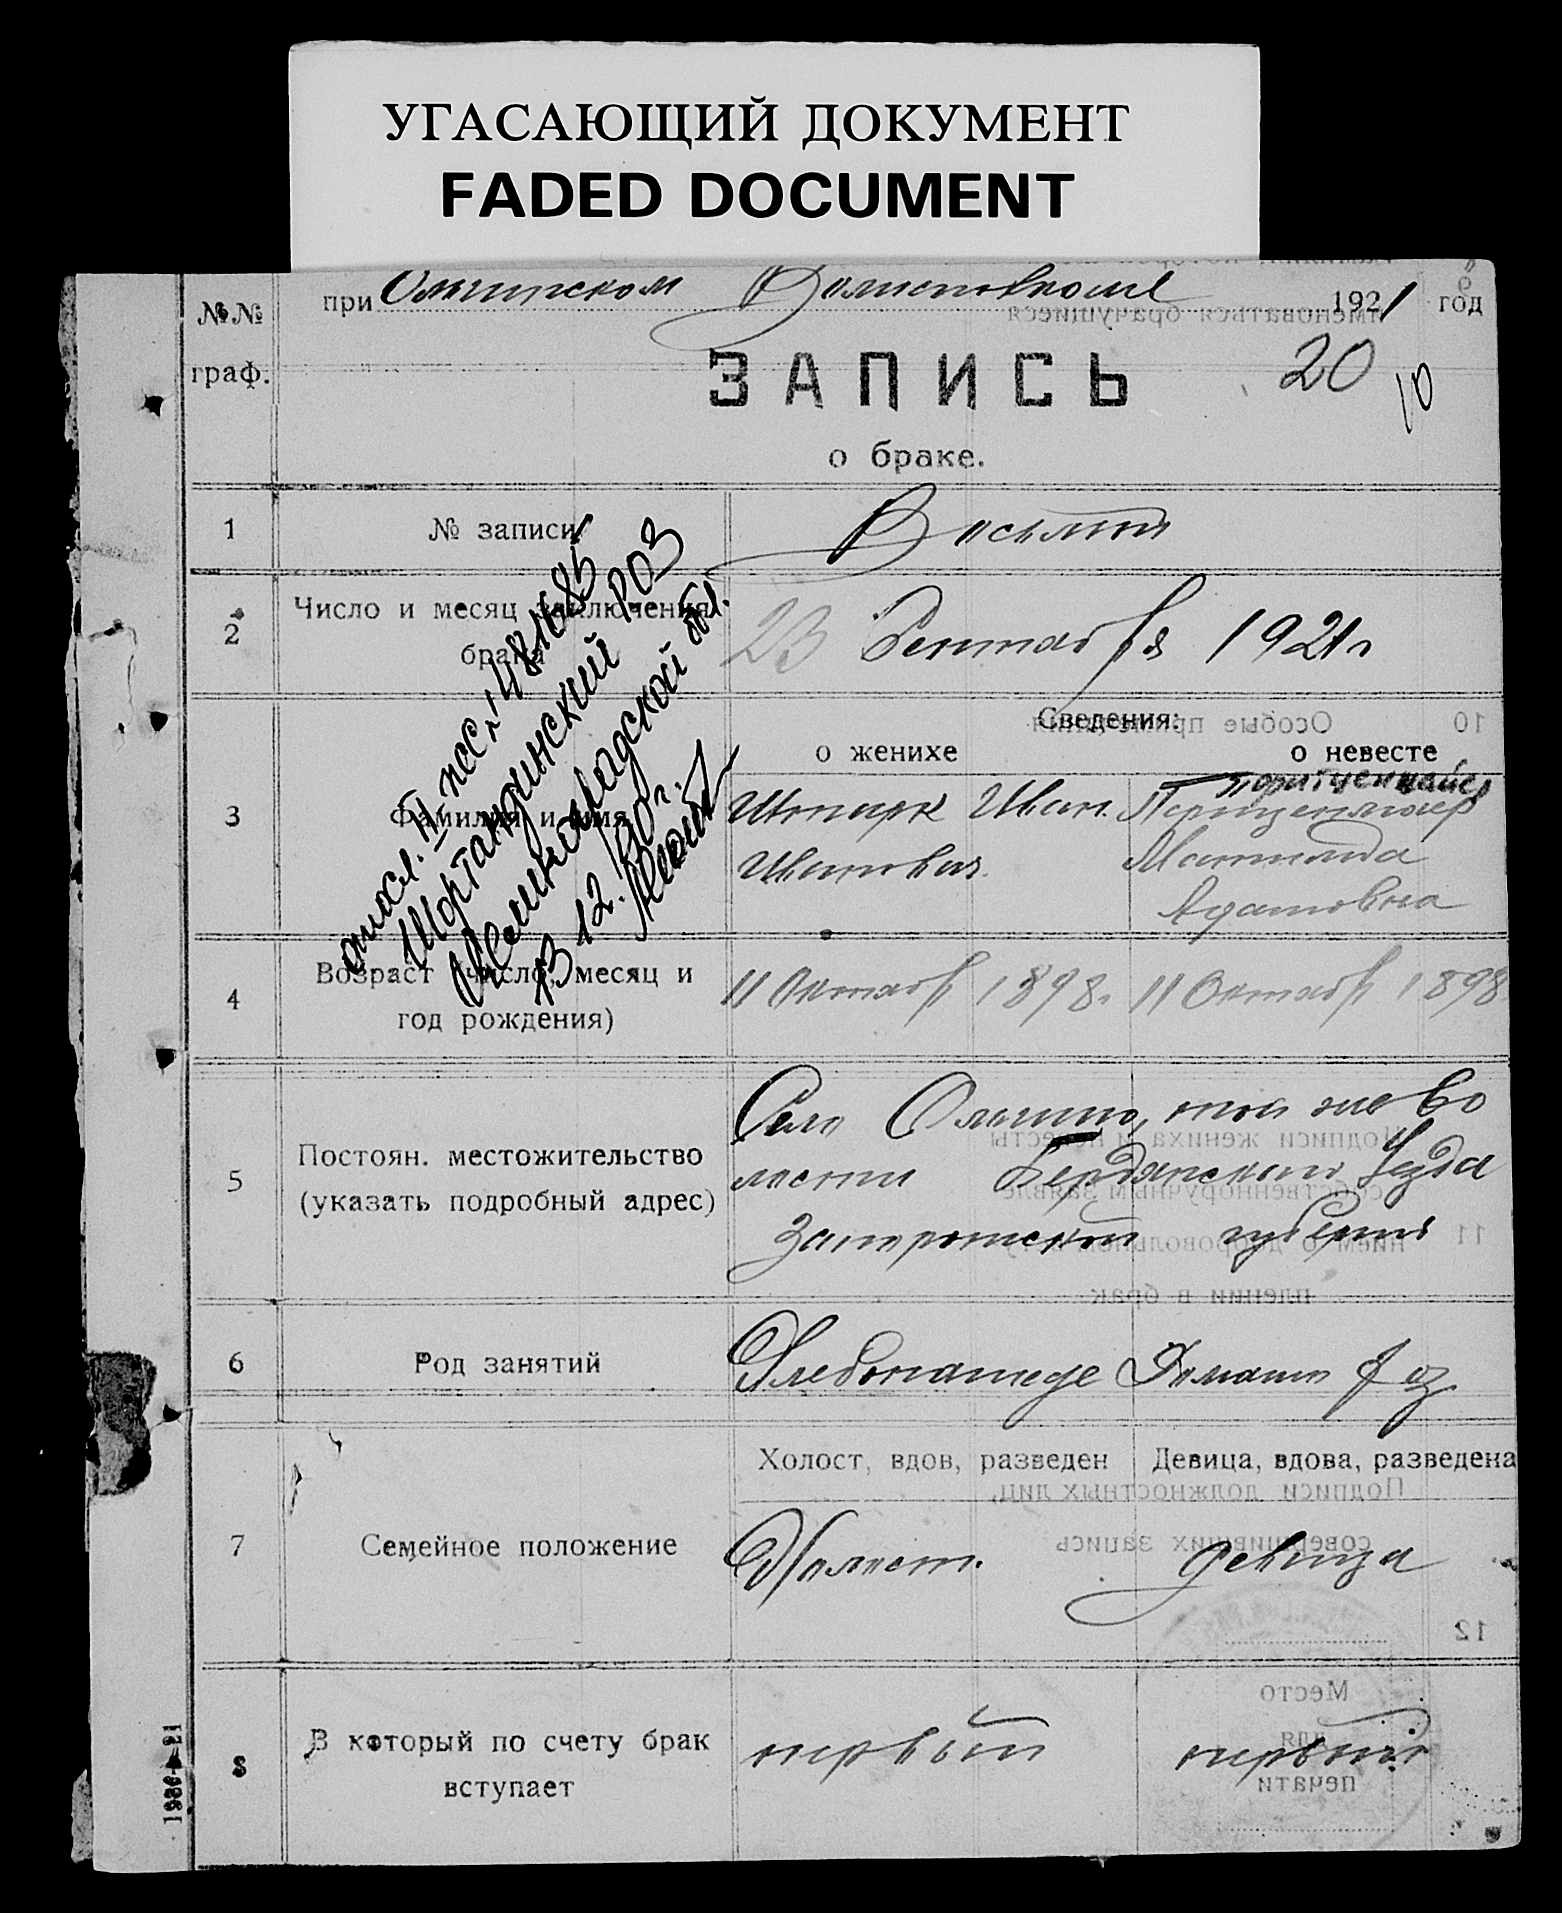 УГАСАЮЩИЙ ДОКУМЕНТ
FADED DOCUMENT
№№ граф.
при Ольгинском Волисполкоме 1921 год
ЗАПИСЬ
20
10
о браке.
1 № записи Восьмой
2 Число и месяц заключения брака 23 Сентября 1921 г
Сведения:
о женихе о невесте
3 Фамилия и имя
Штарк Иван
Иванович
Матильда
Адамовна
4 Возраст (число, месяц и год рождения)
11 Октября 1898. 11 Октября 1898
5 Постоян. местожительство (указать подробный адрес)
Село Ольгино, той же во
лости Бердянского Уезда
Запорожской губернии
6 Род занятий
Хлебопашец Домаш хоз
7 Семейное положение
Холост, вдов, разведен Девица, вдова, разведена
Холост. девица
8 В который по счету брак вступает
первый первый
Шортандинский РОЗ
Целиноградской обл.
12.
Особые
10
11
12
Подписи жениха и невесты
плении в брак
Подписи должностных лиц,
совершивших запись
Место
для
печати
именоваться брачущиеся